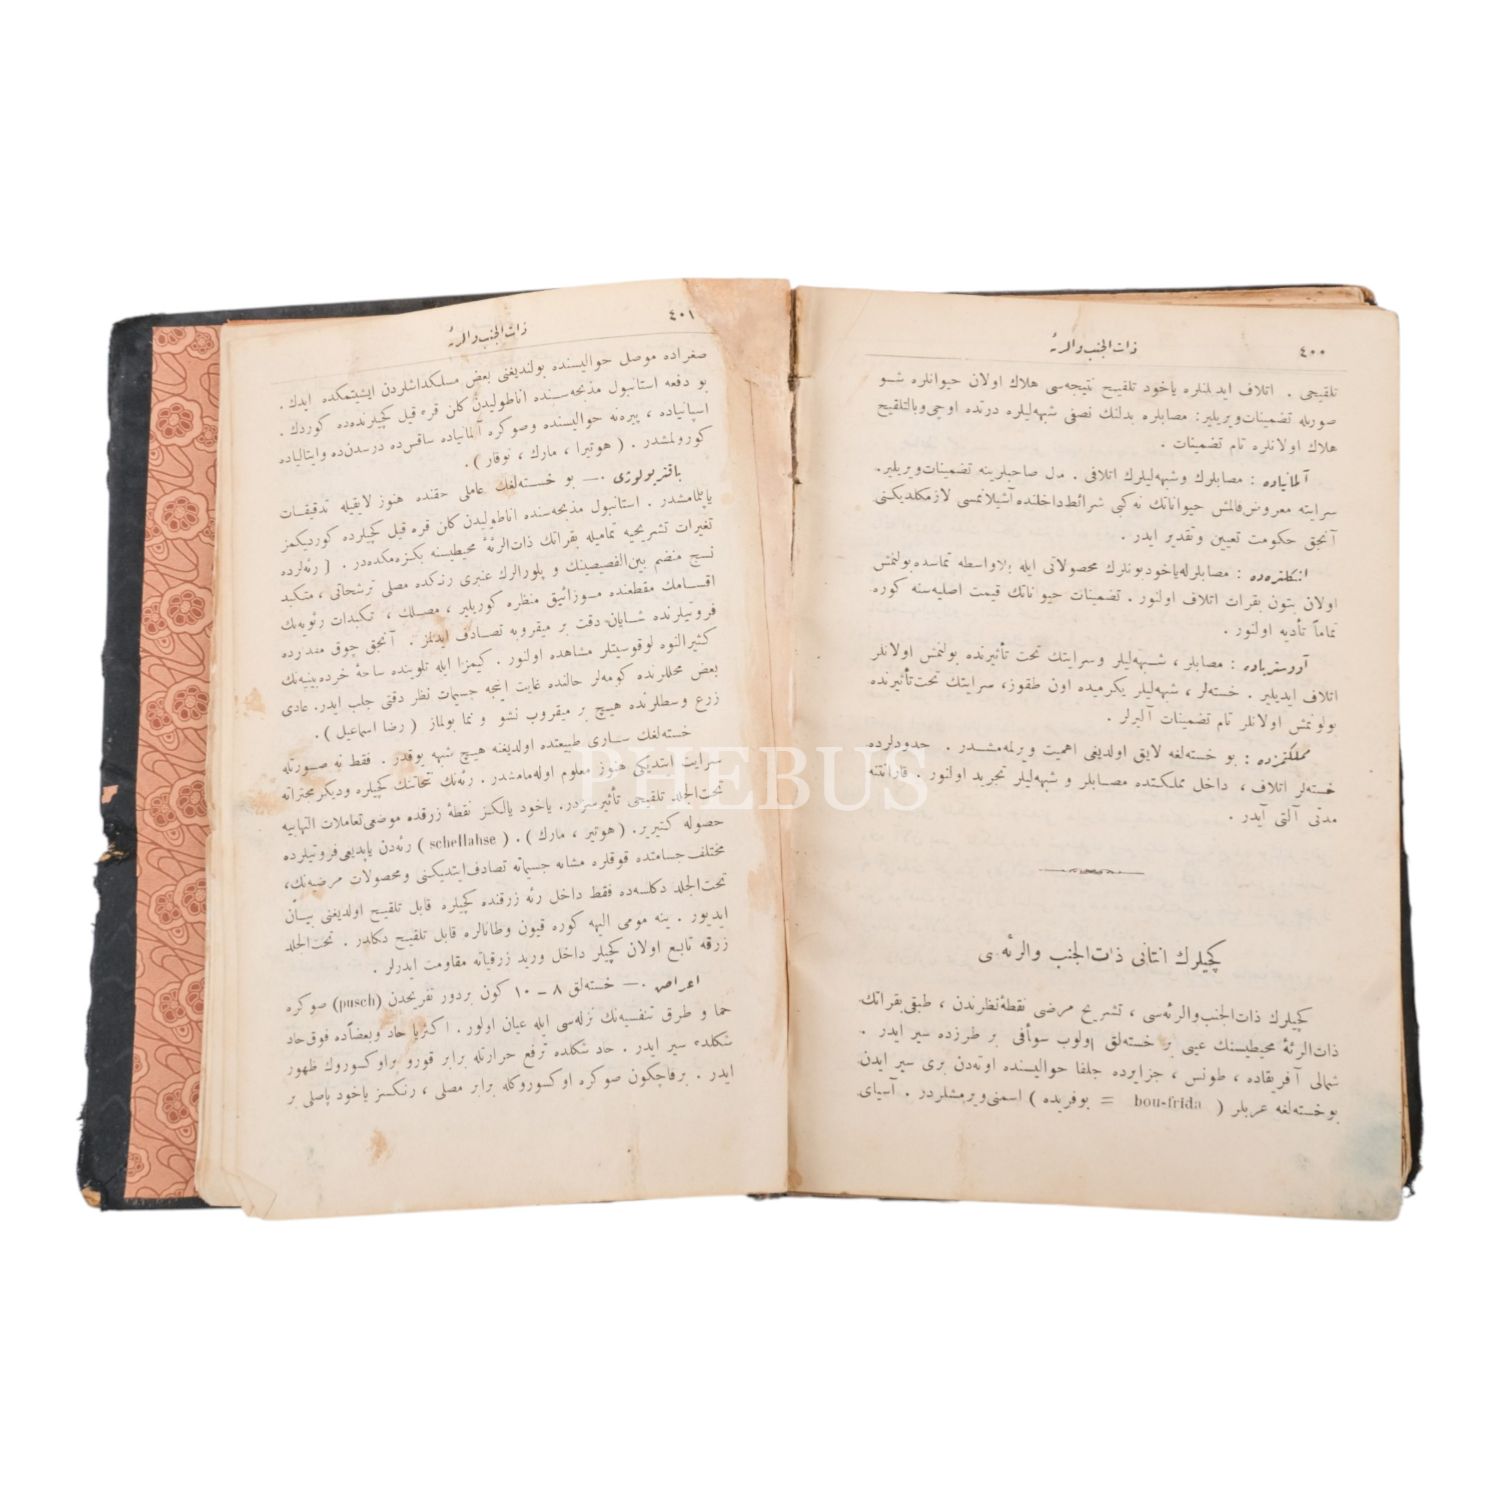 ٤٠٠
ذات الجنب والرئه
تلقیحی . اتلاف ایدیلنلره یاخود تلقیح نتیجه‌سی هلاك اولان حیوانلره شو
صورتله تضمینات ویریلیر: مصابلره بدلنك نصفی شبهه‌لیلره درتده اوچی وبالتلقیح
هلاك اولانلره تام تضمینات .
آلمانیاده : مصابلرك وشبهه‌لیلرك اتلافی . صاحبلرینه تضمینات ویریلیر.
سرایته معروض قالمش حیواناتك نه‌کی شرائط داخلنده آشیلانمسی لازمکلدیکنی
آنجق حکومت تعیین وتقدیر ایدر .
انکلتره‌ده : مصابلرله یاخود بونلرك محصولاتی ایله بلاواسطه تماسده بولنمش
اولان بتون بقرات اتلاف اولنور . تضمینات حیواناتك قیمت اصلیه‌سنه کوره
تماماً تأدیه اولنور .
آوستریاده : مصابلر ، شبهه‌لیلر وسرایتك تحت تأثیرنده بولنمش اولانلر
اتلاف ایدیلیر . خسته‌لر ، شبهه‌لیلر یکرمیده اون طقوز، سرایتك تحت تأثیرنده
بولونمش اولانلر تام تضمینات آلیرلر .
مملکتمزده : بو خسته‌لغه لایق اولدیغی اهمیت ویرلمه‌مشدر . حدودلرده
خسته‌لر اتلاف ، داخل مملکتده مصابلر و شبهه‌لیلر تجرید اولنور . قارانتنه
مدتی آلتی آیدر .
کچیلرك انتانی ذات الجنب والرئه‌سی
کچیلرك ذات الجنب والرئه‌سی ، تشریح مرضی نقطهٔ نظرندن ، طبقی بقراتك
ذات الرئهٔ محیطیسنك عینی بر خسته‌لق اولوب سوأفی بر طرزده سیر ایدر .
شمالی آفریقاده ، طونس ، جزایرده جلفا حوالیسنده اوته‌دن بری سیر ایدن
بو خسته‌لغه عربلر ( bou-frida = بوفریده ) اسمنی ویرمشلردر . آسیای
٤٠١
ذات الجنب والرئه
صغراده موصل حوالیسنده بولندیغنی بعض مسلکداشلردن ایشیتمکده ایدك .
بو دفعه استانبول مذبحه‌سنده اناطولیدن کلن قره قیل کچیلرنده‌ده کوردك .
اسپانیاده ، پیره‌نه حوالیسنده وصوکره آلمانیاده ساقس‌ده درسدن‌ده وایتالیاده
کورولمشدر . ( هوتیرا ، مارك ، نوقار ) .
باقتریولوژی .— بو خسته‌لغك عاملی حقنده هنوز لایقیله تدقیقات
یاپلمامشدر . استانبول مذبحه‌سنده اناطولیدن کلن قره قیل کچیلرده کوردیکمز
تغیرات تشریحیه تمامیله بقراتك ذات الرئهٔ محیطیسنه بکزه‌مکده‌در . [ رئه‌لرده
نسج منضم بین الفصیصینك و پلورالرك عنبری رنکده مصلی ترشحاتی ، متکبد
اقسامك مقطعنده موزائیق منظره کوریلیر ، مصلك ، تکبدات رئویه‌نك
فروتیلرنده شایان دقت بر میقروبه تصادف ایدیلمز . آنجق چوق مقدارده
کثیرالنوه لوقوسیتلر مشاهده اولنور . کیمزا ایله تلوینده ساحهٔ خرده‌بینیه‌نك
بعض محللرنده کومه‌لر حالنده غایت اینجه جسیمات نظر دقتی جلب ایدر. عادی
زرع وسطلرنده هیچ بر میقروب نشو و نما بولماز ( رضا اسماعیل ) .
خسته‌لغك ساری طبیعتده اولدیغنه هیچ شبهه یوقدر . فقط نه صورتله
سرایت ایتدیکی هنوز معلوم اوله‌مامشدر . رئه‌نك تحتاتنك کچیلره ودیکر مجتراته
تحت الجلد تلقیحی تأثیرسزدر. یاخود یالکز نقطهٔ زرقده موضعی تعاملات التهابیه
حصوله کتیریر . ( هوتیر ، مارك ) . ( schellahse ) رئه‌دن یاپدیغی فروتیلرده
مختلف جسامتده قوقلره مشابه جسیماته تصادف ایتدیکنی ومحصولات مرضیه‌نك،
تحت الجلد دکلسه‌ده فقط داخل رئه زرقنده کچیلره قابل تلقیح اولدیغنی بیان
ایدیور . ینه مومی الیهه کوره قیون وطانالره قابل تلقیح دکلدر . تحت الجلد
زرقه تابع اولان کچیلر داخل ورید زرقیاته مقاومت ایدرلر .
اعراض .— خسته‌لق ٨ – ١٠ کون بر دور تفریخدن (pusch) صوکره
حما و طرق تنفسیه‌نك نزله‌سی ایله عیان اولور . اکثریا حاد وبعضاًده فوق حاد
شکلده سیر ایدر . حاد شکلده ترفع حرارتله برابر قورو بر اوکسوروك ظهور
ایدر . برقاچ کون صوکره اوکسوروکله برابر مصلی ، رنکسز یاخود پاصلی بر
PHEBUS